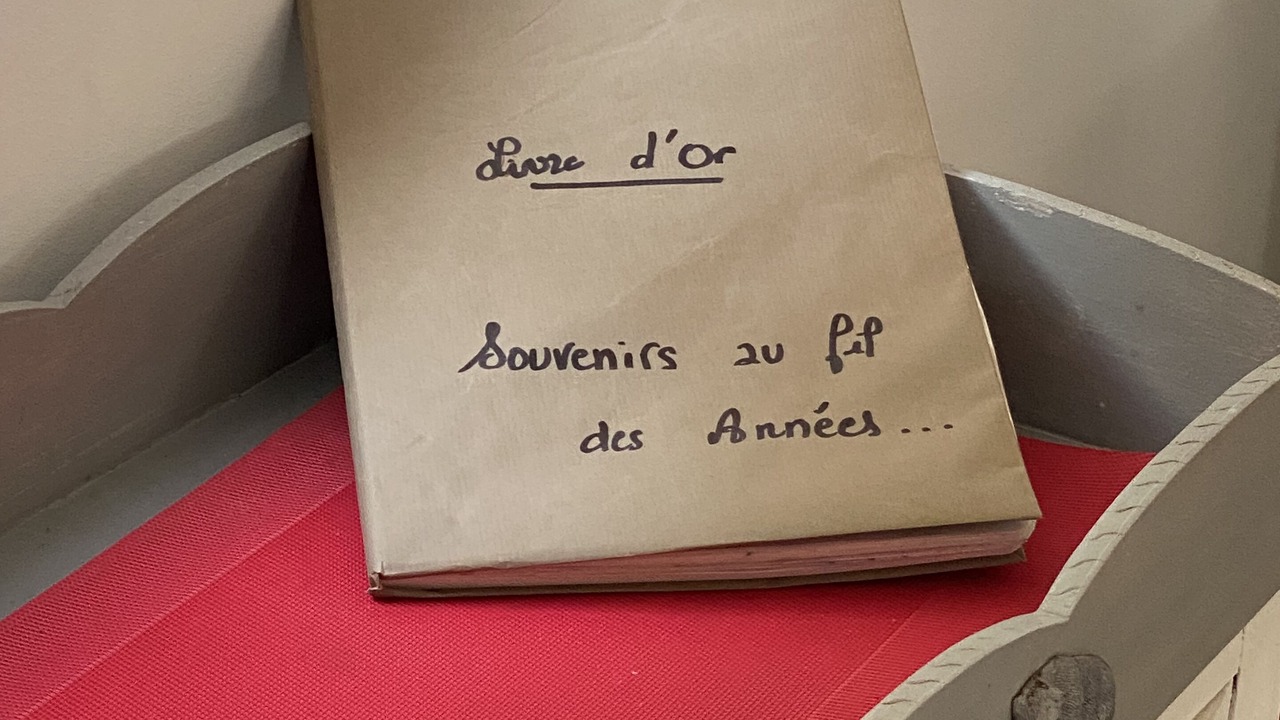 Livre d'Or
Souvenirs au fil
des Années...